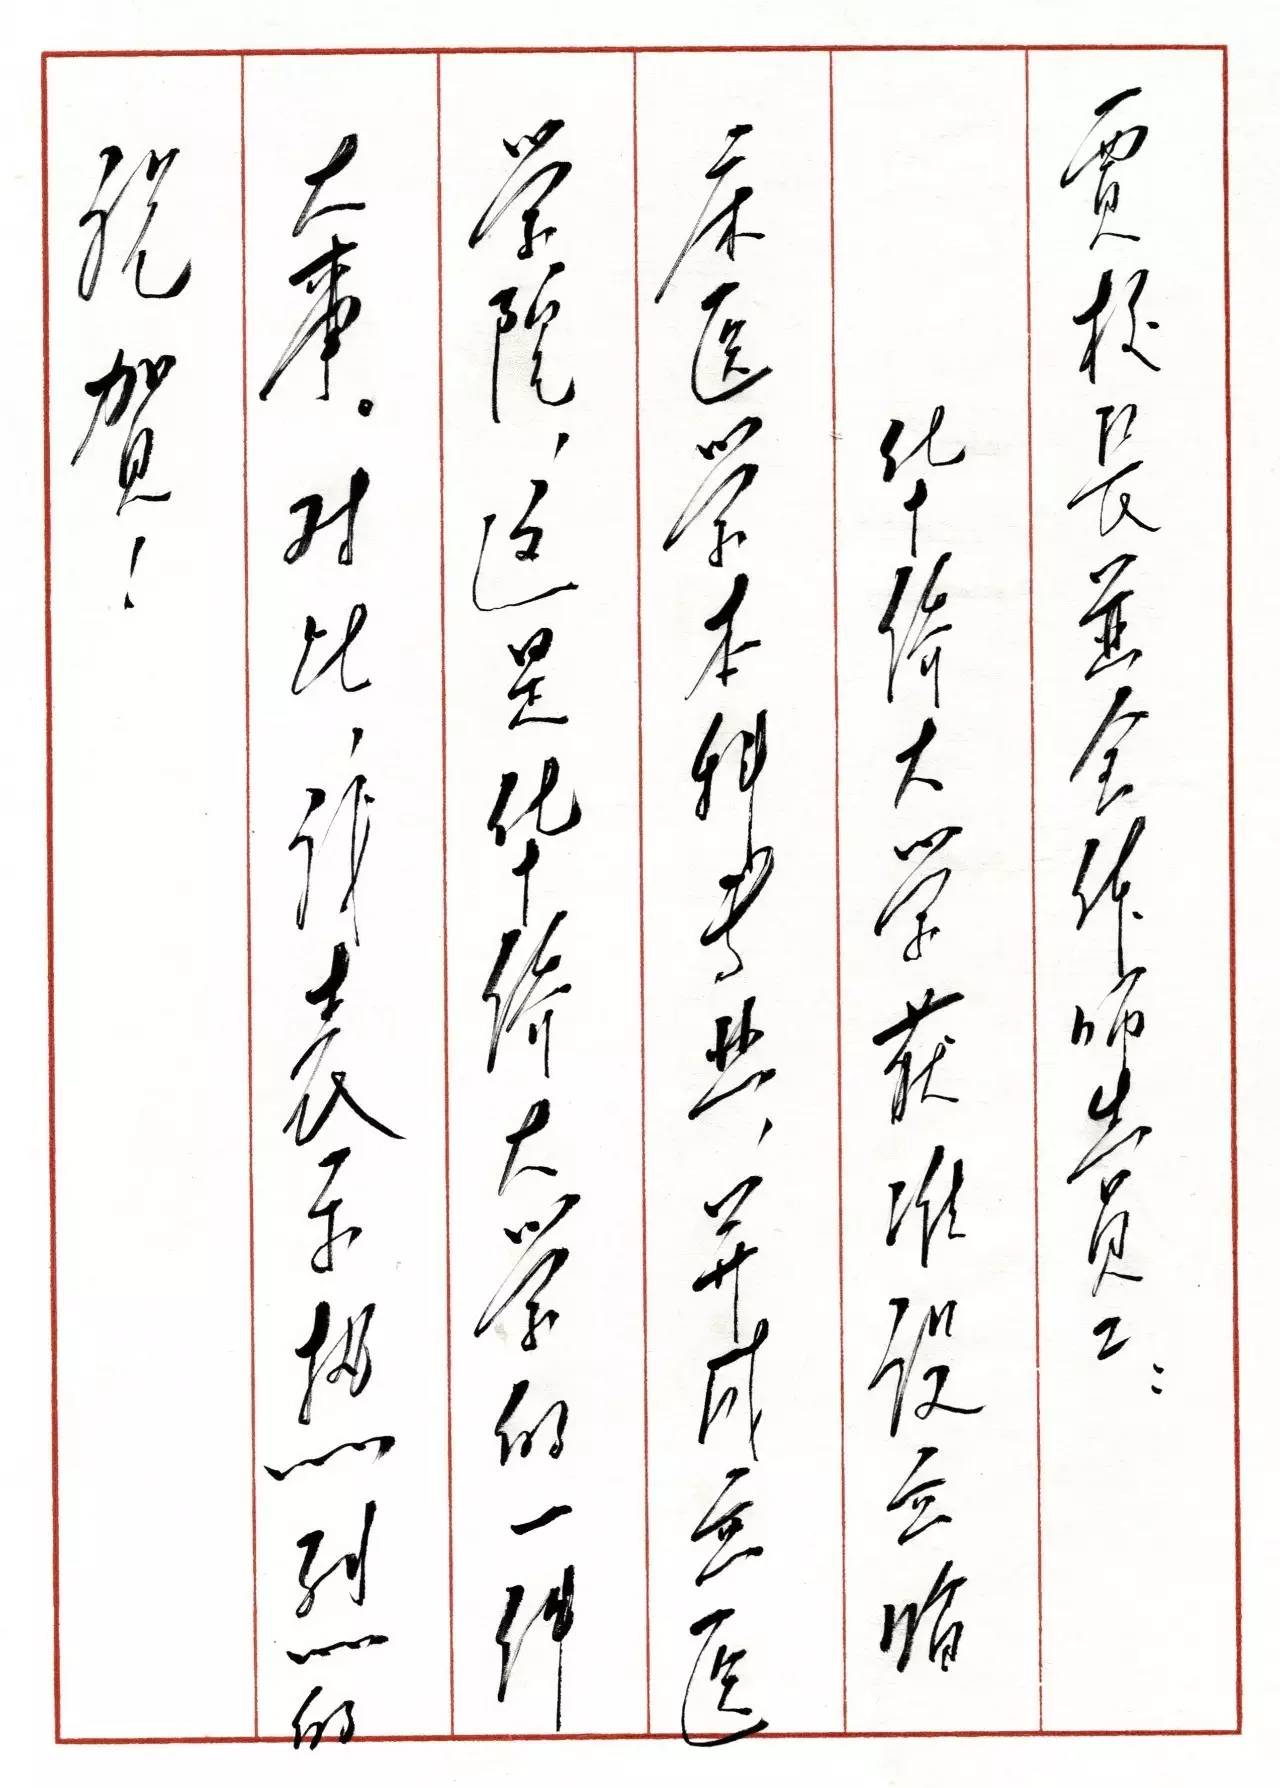 贾校長並全体师生員工：
华侨大学获准设立临
床医学本科专业，并成立医
学院，这是华侨大学的一件
大事。对此，谨表示热烈的
祝賀！